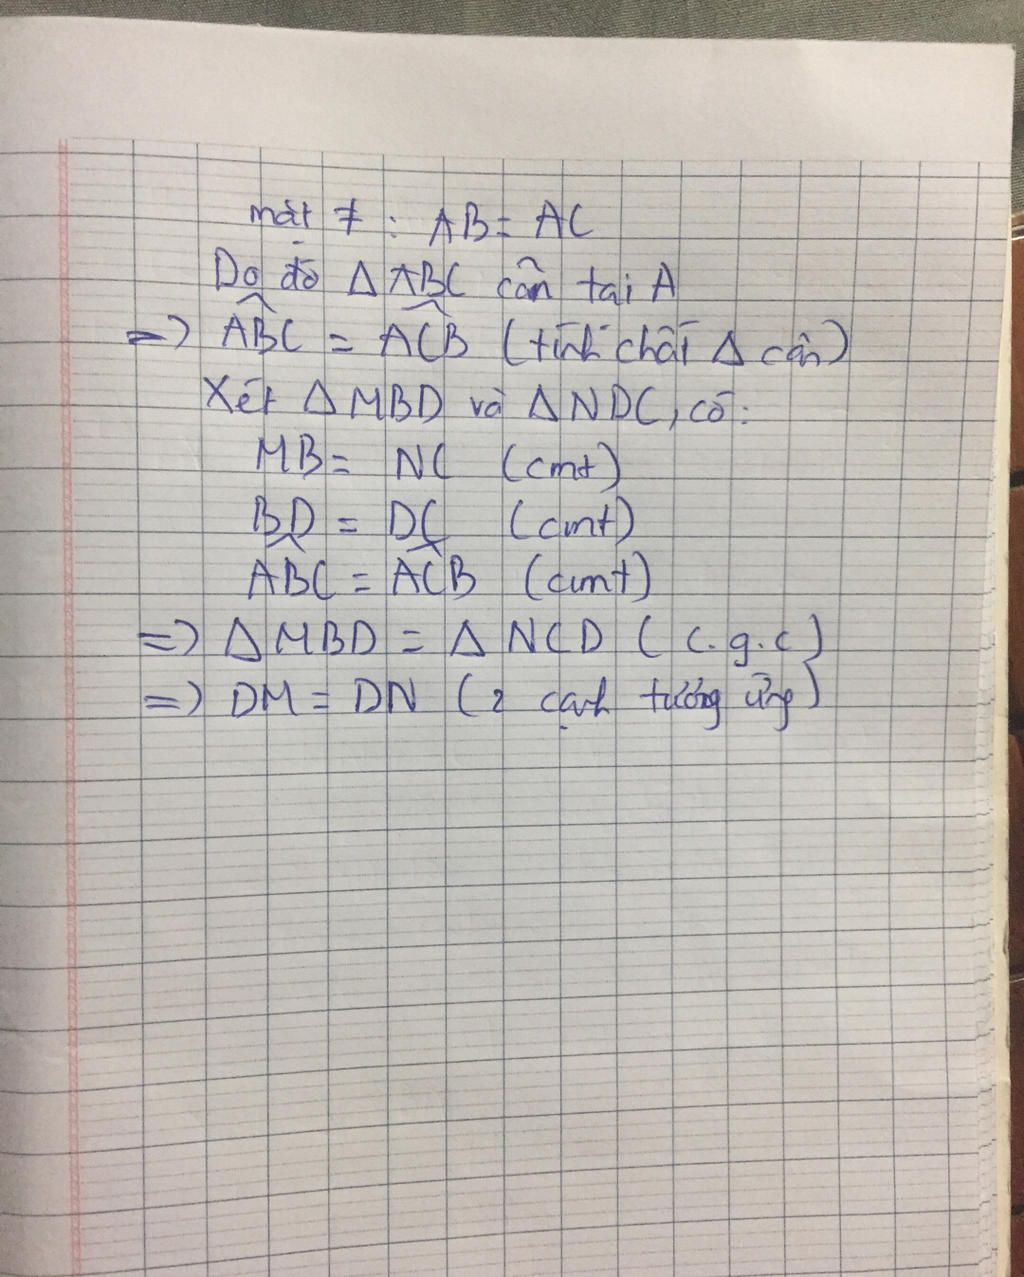 mặt ≠ : AB = AC
Do đó Δ ABC cân tại A
=> \widehat{ABC} = \widehat{ACB} (tính chất Δ cân)
Xét Δ MBD và Δ NDC, có:
MB = NC (cmt)
BD = DC (cmt)
\widehat{ABC} = \widehat{ACB} (cmt)
=> Δ MBD = Δ NCD (c.g.c)
=> DM = DN (2 cạnh tương ứng)